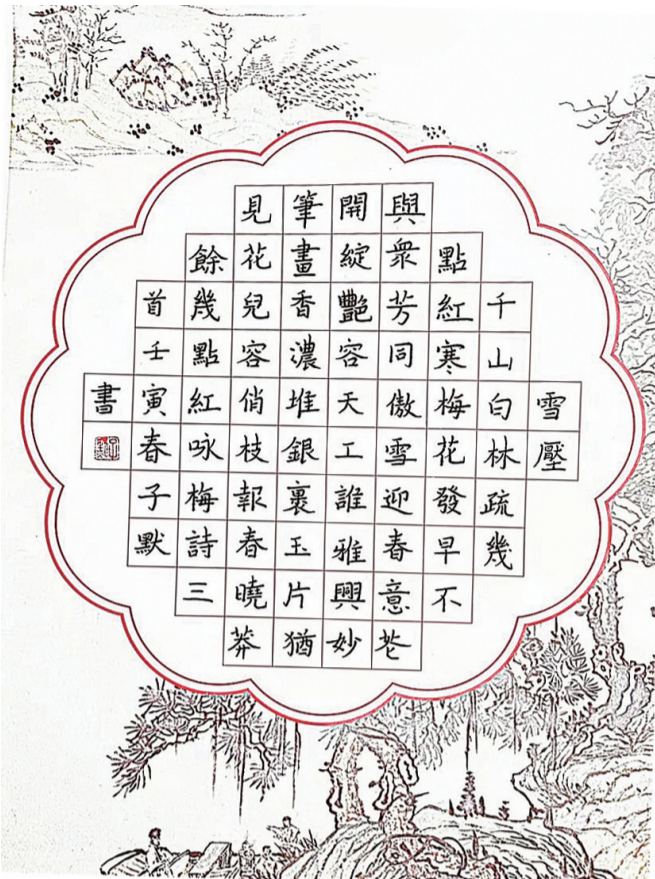 雪壓
千山白林疏幾
點紅寒梅花發早不
與衆芳同傲雪迎春意芲
開綻豔容天工誰雅興妙
筆畫香濃堆銀裹玉片猶
見花兒容俏枝報春曉莽
餘幾點紅咏梅詩三
首壬寅春子默
書